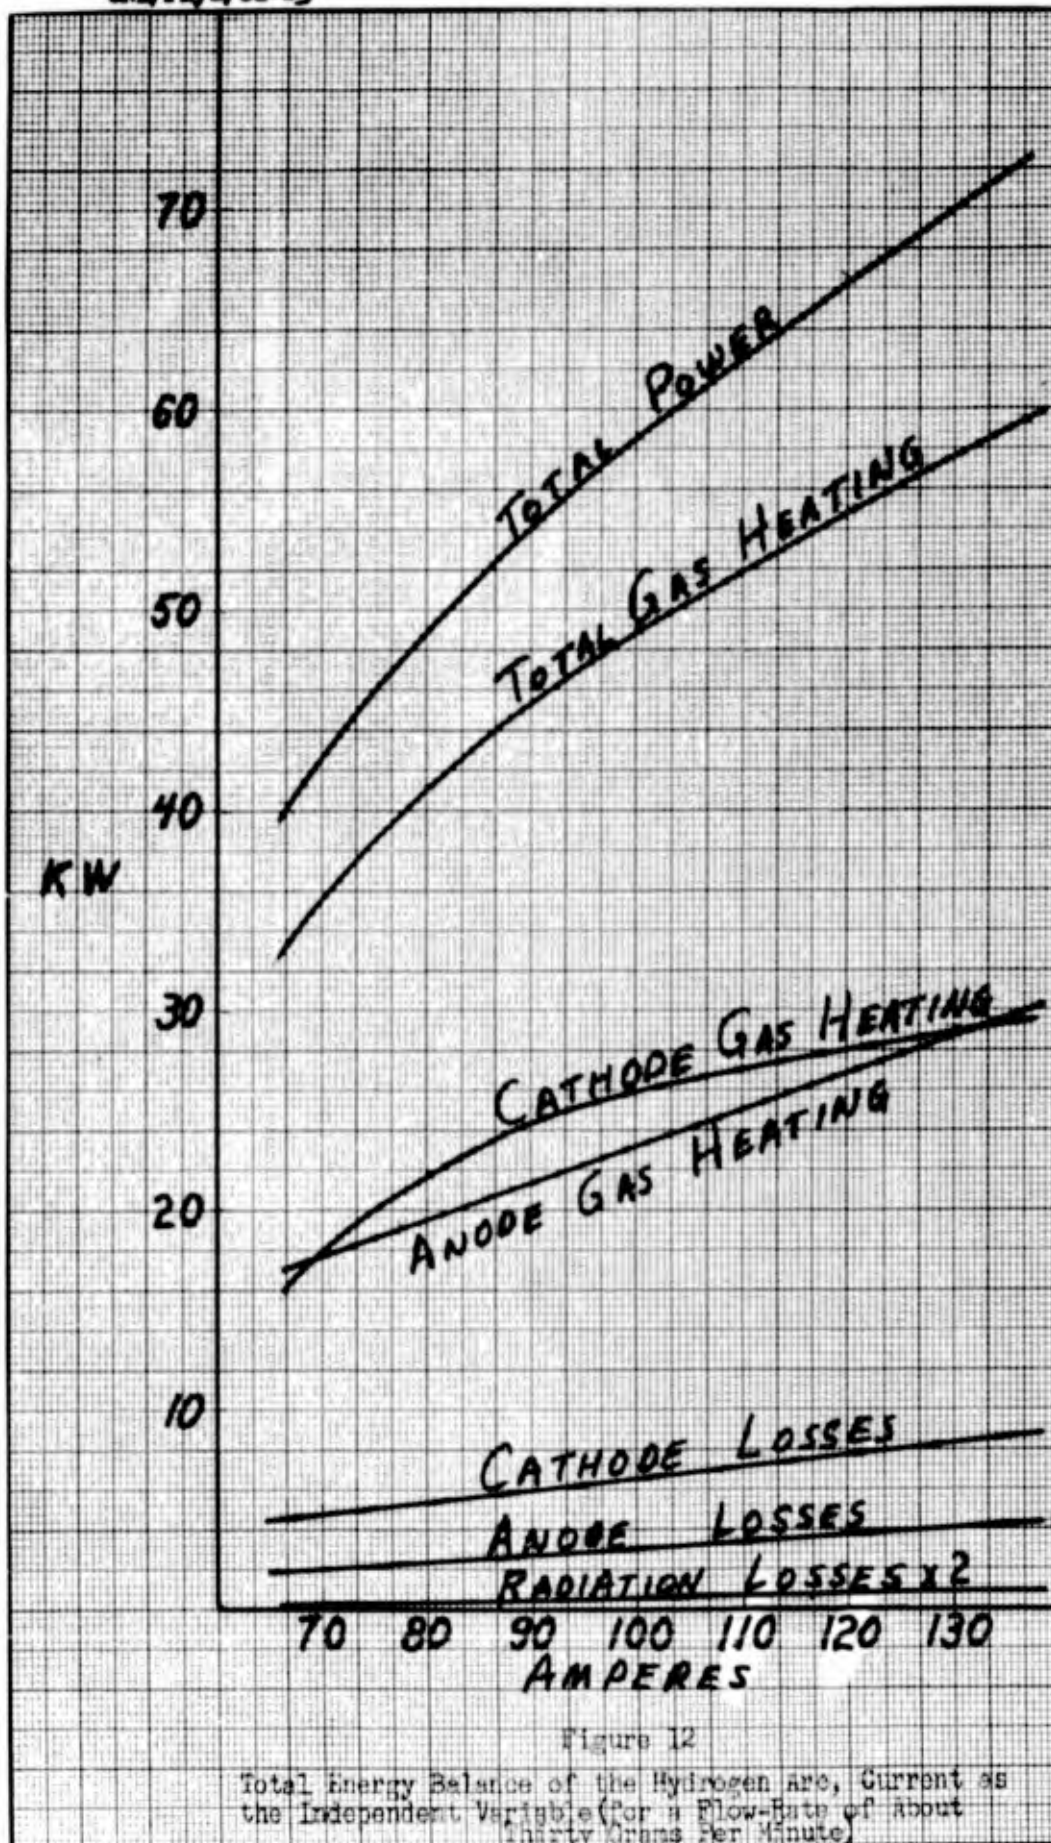 70
TOTAL POWER
60
TOTAL GAS HEATING
50
40
KW
30
CATHODE GAS HEATING
ANODE GAS HEATING
20
10
CATHODE LOSSES
ANODE LOSSES
RADIATION LOSSES x 2
70 80 90 100 110 120 130
AMPERES
Figure 12
Total Energy Balance of the Hydrogen Arc, Current as
the Independent Variable (for a Flow-Rate of About
Thirty Grams Per Minute)